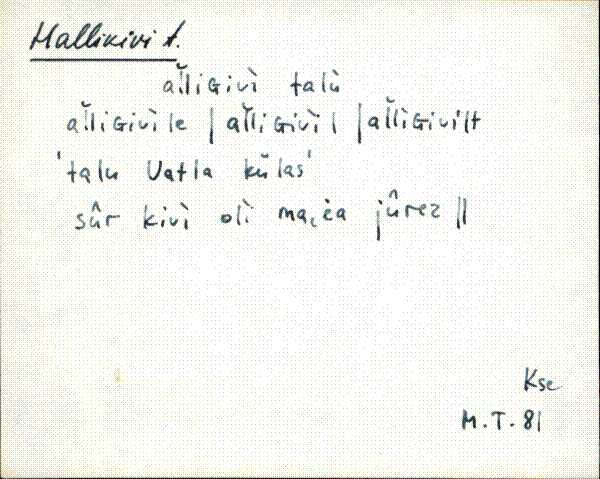 Hallikivi t.
al̆liGivì talù
al̆liGivìle | al̆liGivìl | al̆liGivìlt
'talu Vatla külas'
sûr kivì olì jûrez ||
Kse
M.T. 81